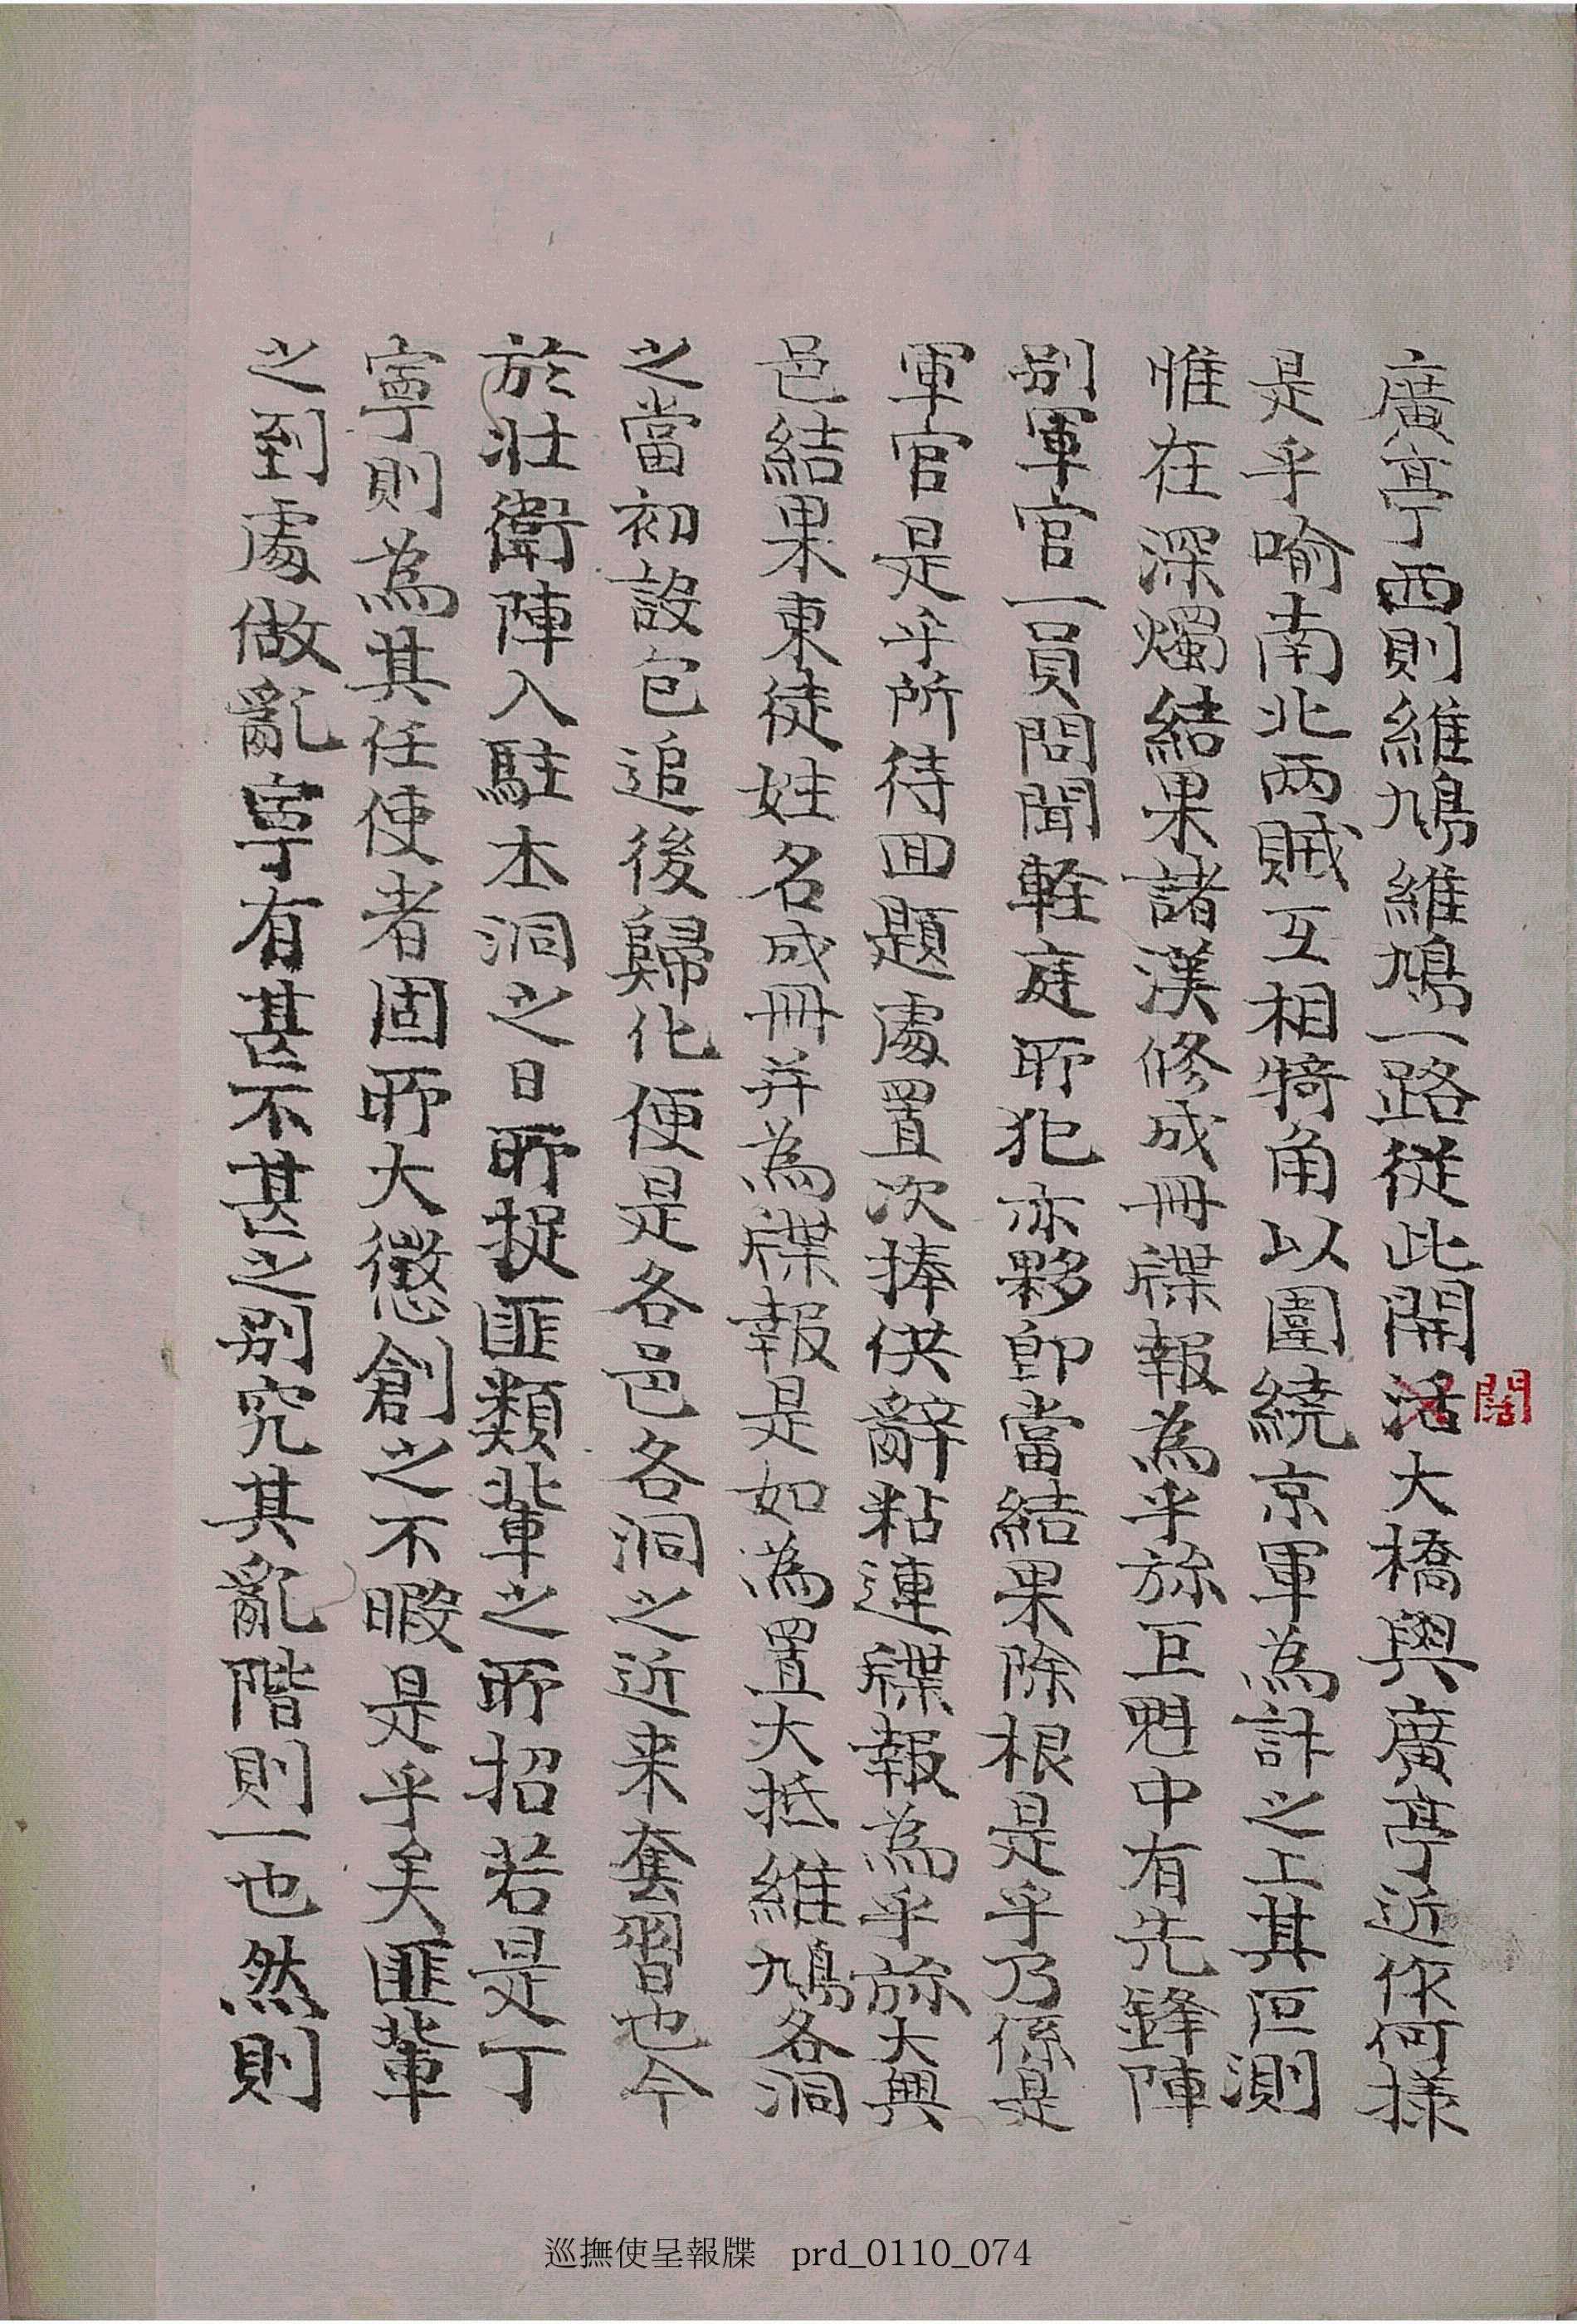 廣亭西則維鳩維鳩一路從此開活大橋與廣亭近作何樣
闊
是乎喩南北两賊互相犄角以圍繞京軍為計之上其叵測
惟在深燭結果諸漢修成冊牒報為乎旀巨魁中有先鋒陣
別軍官一員問聞輊庭所犯亦夥卽當結果除根是乎乃係是
軍官是乎所待回題處置次捧供辭粘連牒報為乎旀大興
邑結果東徒姓名成冊并為牒報是如為置大抵維鳩各洞
之當初設包追後歸化便是各邑各洞之近来套習也今
於壯衛陣入駐本洞之日所捉匪類輩之所招若是丁
寧則為其任使者固所大懲創之不暇是乎矣匪輩
之到處做亂寧有甚不甚之別究其亂階則一也然則
巡撫使呈報牒 prd_0110_074